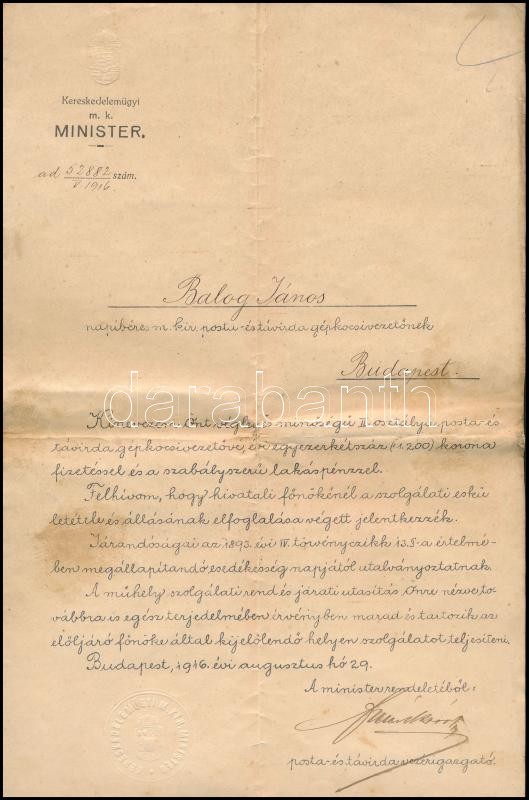 Kereskedelemügyi
m. k.
MINISTER.
ad 52882 szám.
V. 1916.
Balog János
napibéres m. kir. posta- és távirda gépkocsivezetőnek
Budapest.
darabanth
Kinevezem Önt végleges minőségű II. osztályú posta- és
távirda gépkocsivezetővé évi egyezerkétszáz (1.200) korona
fizetéssel és a szabályszerű lakáspénzzel.
Felhivom, hogy hivatali főnökénél a szolgálati eskü
letétele és állásának elfoglalása végett jelentkezzék.
Járandóságai az 1893. évi IV. törvényczikk 13. §-a értelmé-
ben megállapitandó esedékesség napjától utalványoztatnak.
A műhely szolgálati rend és járati utasitás Önre nézve to-
vábbra is egész terjedelmében érvényben marad és tartozik az
elöljáró főnöke által kijelölendő helyen szolgálatot teljesiteni.
Budapest, 1916. évi augusztus hó 29.
A minister rendeletéből:
posta- és távirda vezérigazgató.